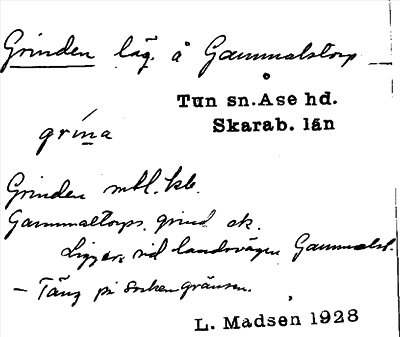 Grinden läg. å Gammalstorp
Tun sn. Åse hd.
Skarab. län
grína
Grinden mbl. kb.
Gammaltorps. grind ek.
Ligger vid landsvägen Gammalst.
– Täng på Sockengränsen.
L. Madsen 1928